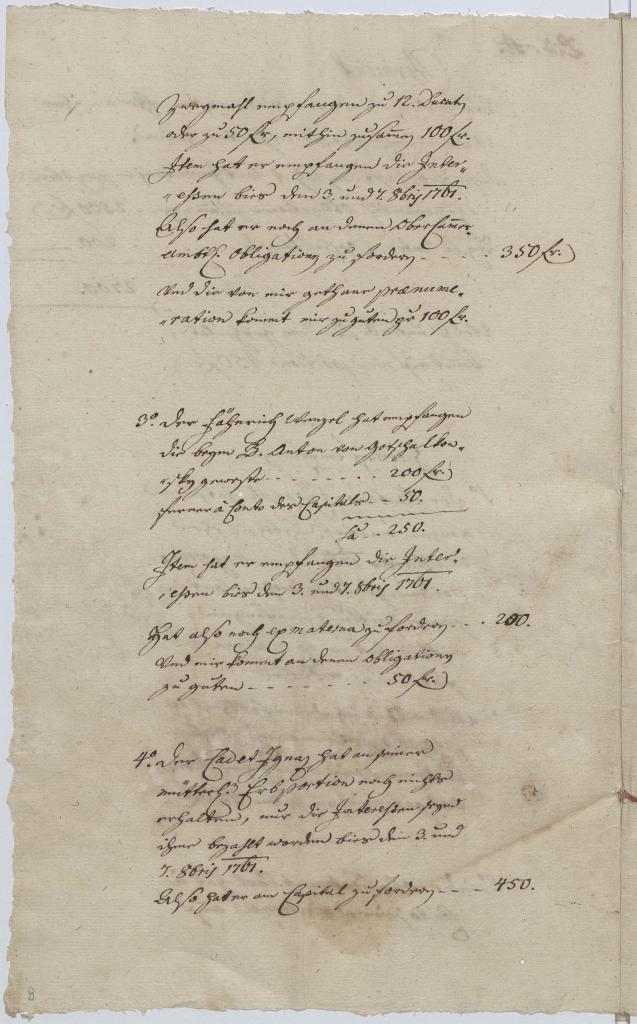 Zweymahl empfangen zu 12. Ducaten
oder zu 50 fr, mithin zusammen 100 fr.
Item hat er empfangen die Inter-
-eßen bies den 3. und 7. 8bris 1761.
Also hat er noch an denen Obersammer-
ambts Obligationen zu fordern - - - - 350 fr)
Und die von mir gethane prænume-
-ration kommt mir zu guten pr 100 fr.
3º. Der Fähnrich Wenzel hat empfangen
die beym B. Anton von Gotschalkow-
-sky geweste - - - - - - - 200 fr)
ferner à Conto des Capitals - - 50.
Sa - - 250.
Item hat er empfangen die Inter-
-eßen bies den 3. und 7. 8bris 1761.
Hat also noch ex materna zu fordern - - - 200.
Und mir kommt an denen Obligationen
zu guten - - - - - - - 50 fr.)
4º. Der Cadet Ignaz hat an seiner
mütterl: Erbsportion noch nichts
erhalten, nur die Intereßen seynd
ihme bezahlt worden bies den 3. und
7. 8bris 1761.
Also hat er am Capital zu fordern - - - 450.
8